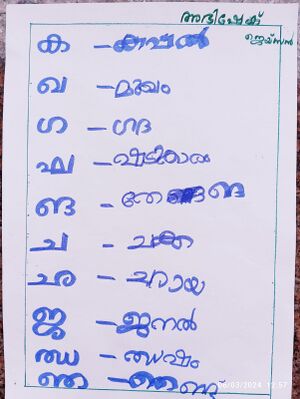 അഭിഷേക്
ജെയ്സൻ
ക – കപ്പൽ
ഖ – മുഖം
ഗ – ഗദ
ഘ – ഘടികാരം
ങ – തേങ്ങ
ച – ചക്ക
ഛ – ഛായ
ജ – ജനൽ
ഝ – ഝഷം
ഞ – ഞണ്ട്
08/03/2024 12:57